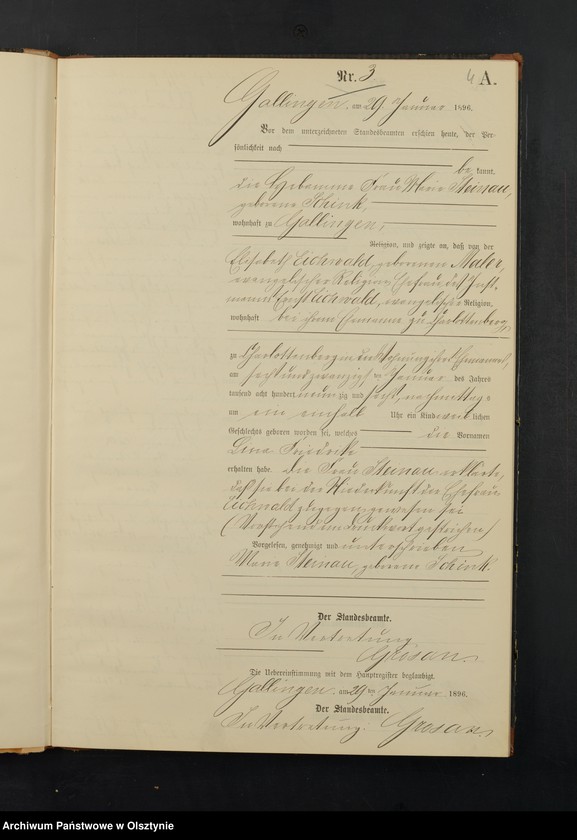 Nr. 3
4
A.
Gallingen, am 29 Januar 1896.
Vor dem unterzeichneten Standesbeamten erschien heute, der Per-
sönlichkeit nach
be kannt,
die Hebamme Frau Marie Steinau,
geborene Schink,
wohnhaft zu Gallingen,
Religion, und zeigte an, daß von der
Elisabeth Eichwald, geborenen
evangelischer Religion, Ehefrau des Inst-
manns Ernst Eichwald, evangelischer Religion,
wohnhaft bei ihrem Ehemanne zu Charlottenberg,
zu Charlottenberg in der Wohnung ihres Ehemannes,
am sechsundzwanzigsten Januar des Jahres
tausend acht hundert neun zig und sechs, nachmittags
um ein einhalb Uhr ein Kind weib lichen
Geschlechts geboren worden sei, welches die Vornamen
Lina
erhalten habe. Die Frau Steinau erklärte,
daß sie bei der Niederkunft der Ehefrau
Eichwald zugegen gewesen sei
(Vorstehend ein Druckwort gestrichen)
Vorgelesen, genehmigt und unterschrieben
Marie Steinau, geborene Schink.
Der Standesbeamte.
In Vertretung
Die Uebereinstimmung mit dem Hauptregister beglaubigt.
Gallingen, am 29ten Januar 1896.
Der Standesbeamte.
In Vertretung.
Archiwum Państwowe w Olsztynie